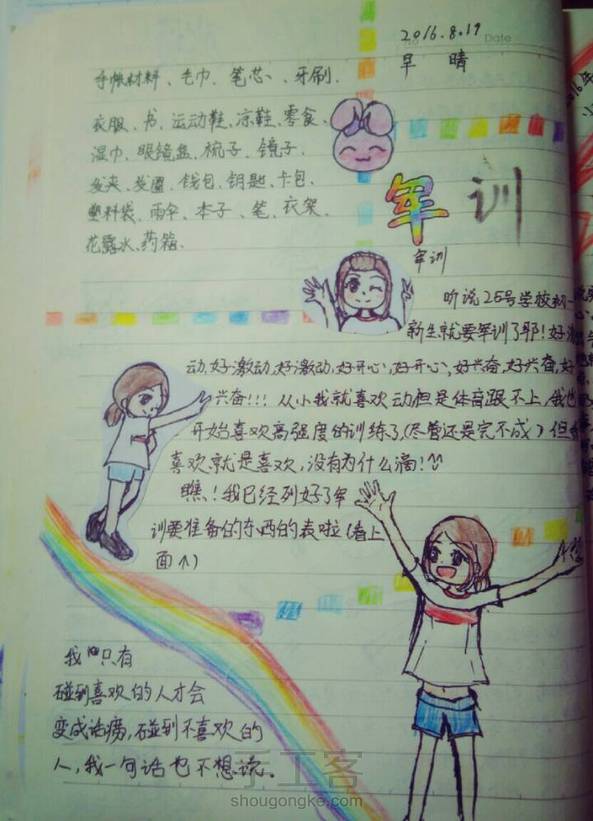 2016.8.19
No
Date
早 晴
手帐材料、毛巾、笔芯、、牙刷、
衣服、书、运动鞋、凉鞋、零食、
湿巾、眼镜盒、梳子、镜子、
发夹、发圈、钱包、钥匙、卡包、
塑料袋、雨伞、本子、笔、衣架、
花露水、药箱、
军训
军训
听说25号学校初一
新生就要军训了耶！好激
动，好激动，好激动，好开心，好开心，好兴奋，好兴奋，好
兴奋！！！从小我就喜欢动但是体育跟不上，我也
开始喜欢高强度的训练了，（尽管还是完不成）但
喜欢就是喜欢，没有为什么滴！
瞧！我已经列好了军
训要准备的东西的表啦（看上
面↑）
我 只有
碰到喜欢的人才会
变成话痨，碰到不喜欢的
人，我一句话也不想说。
手工客
shougongke.com
2016年